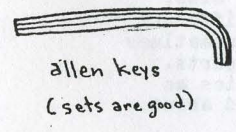 allen keys
(sets are good)